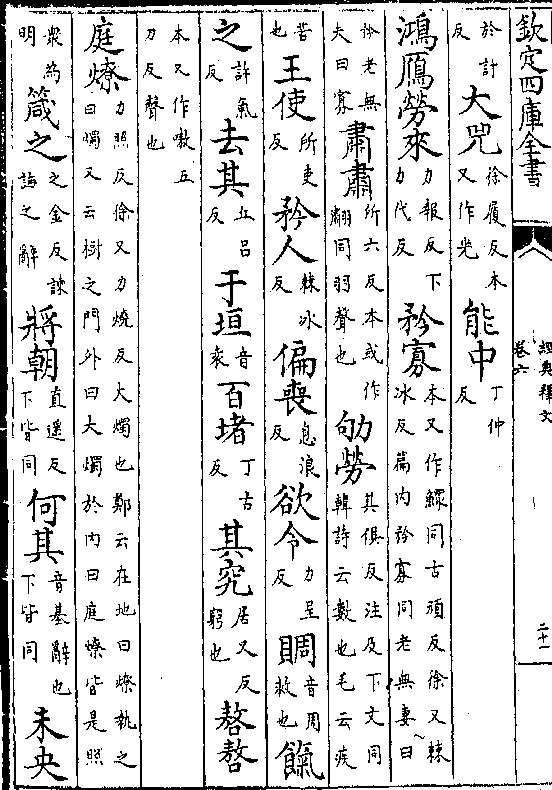 欽定四庫全書
經典釋文
卷六
二十一
於計反大兕徐履反本又作𠒅能中丁仲反
鴻鴈勞來力報反下力代反矜寡本又作鰥同古頑反徐又棘冰反篇内矜寡同老無妻曰
矜老無夫曰寡肅肅所六反本或作同羽聲也劬勞其俱反注及下文同韓詩云數也毛云疾
苦也王使所吏反矜人棘冰反偏喪息浪反欲令力呈反賙音周救也餼
之許氣反去其丘呂反于垣音袁百堵丁古反其究居又反窮也嗸嗸
本又作嗷五刀反聲也
庭燎力照反徐又力燒反大燭也鄭云在地曰燎執之曰燭又云樹之門外曰大燭於内曰庭燎皆是照
衆為明箴之之金反諫誨之辭將朝直遥反下皆同何其音基辭也下皆同未央